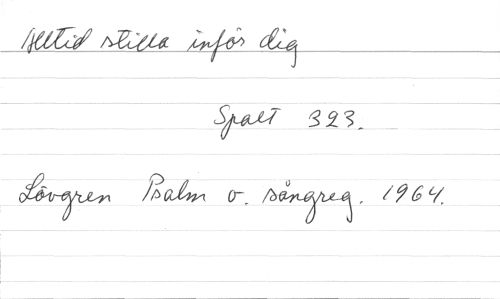 Alltid stilla inför dig
Spalt 323.
Lövgren Psalm o. sångreg. 1964.